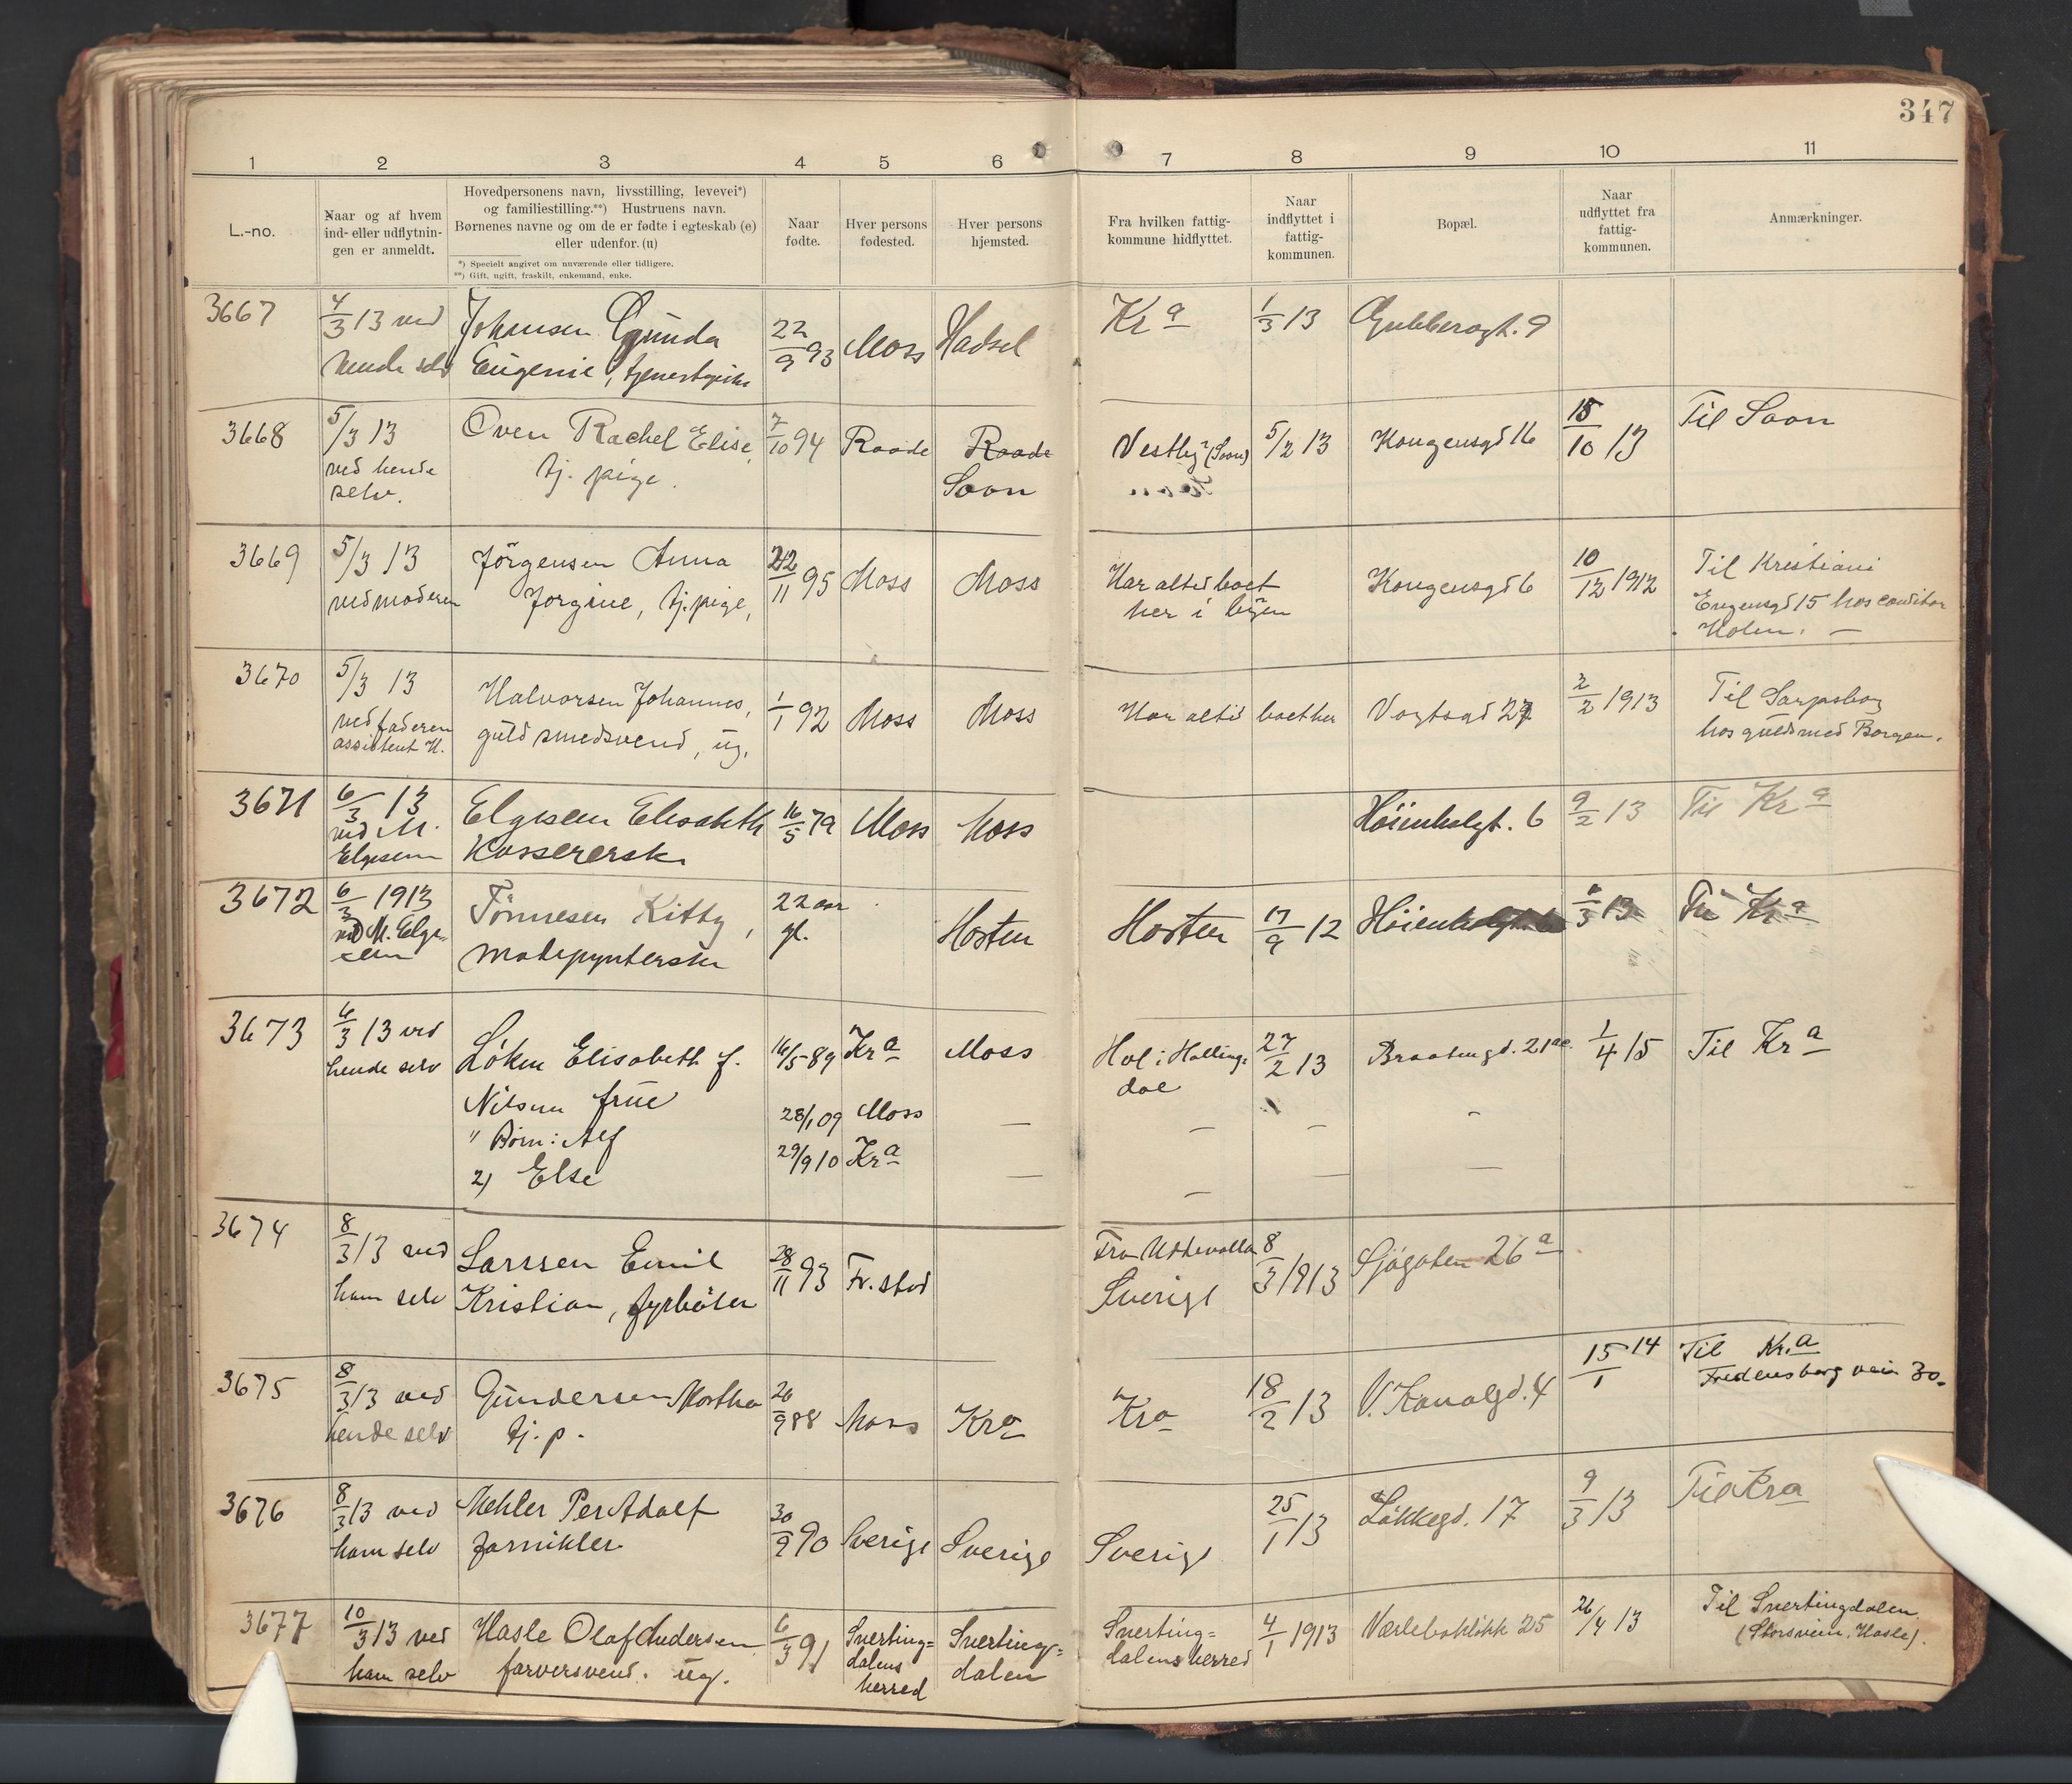 347
1 2 3 4 5 6 7 8 9 10 11
L.-no.
Naar og af hvem
ind- eller udflytnin-
gen er anmeldt.
Hovedpersonens navn, livsstilling, levevei*)
og familiestilling.**) Hustruens navn.
Børnenes navne og om de er fødte i egteskab (e)
eller udenfor. (u)
*) Specielt angivet om nuværende eller tidligere.
**) Gift, ugift, fraskilt, enkemand, enke.
Naar
fødte.
Hver persons
fødested.
Hver persons
hjemsted.
Fra hvilken fattig-
kommune hidflyttet.
Naar
indflyttet i
fattig-
kommunen.
Bopæl.
Naar
udflyttet fra
fattig-
kommunen.
Anmærkninger.
3667 4/3 13 ved Johansen Gunda 22/9 93 Moss Hadsel Kra 1/3 13 Gubberogt. 9
hende selv Eugenie, tjenestepike
3668 5/3 13 Oven Rachel Elise, 7/10 94 Raade Raade Vestby (Soon) 5/2 13 Kongensgd 16 15/10 13 Til Soon
ved hende tj. pige. Soon
selv.
3669 5/3 13 Jörgensen Anna 22/11 95 Moss Moss Har altid boet Kongensgd 6 10/12 1912 Til Kristiani
ved moderen Jorgine, tj. pige, her i byen Engensgd 15 hos conditor
Holen. —
3670 5/3 13 Halvorsen Johannes, 1/1 92 Moss Moss Har altid boet her Vogtsgd 27 2/2 1913 Til Sarpsborg
ved faderen guldsmedsvend, ug. hos guldsmed Borgen.
assistent H.
3671 6/3 13 Elgesem Elisabeth 16/5 79 Moss Moss Höienhalgt. 6 9/2 13 Til Kra
ved M. Kassererske
Elgesem
3672 6/3 1913 Tönnesen Kitty, 22 aar Horten Horten 17/9 12 /3 13 Til Kra
ved M. Elge- motepynterske gl.
sem
3673 6/3 13 ved Löken Elisabeth f. 16/5 89 Kra Moss Hol i Halling- 27/2 13 Braatengd. 21 1/4 15 Til Kra
hende selv Nilsen frue dal
" Börn: Alf 28/1 09 Moss — — — —
2) Else 29/9 10 Kra — — — —
3674 8/3 13 ved Larssen Emil 28/11 93 Fr.stad Fra Uddevalla 8/3 1913 Sjögaten 26a
ham selv Kristian, fyrböter Sverige
3675 8/3 13 ved Gundersen Martha 26/9 88 Moss Kra Kra 18/2 13 V. Kanalgd. 4 15/1 14 Til Kr.a
hende selv tj. p. Fredensborg vein 30.
3676 8/3 13 ved Mehler Per Adolf 30/9 90 Sverige Sverige Sverige 25/1 13 Lökkegd. 17 9/3 13 Til Kra
ham selv fornikler
3677 10/3 13 ved Hasle Olaf Andersen 6/3 91 Snerting= Snerting= Snerting= 4/1 1913 Værlebaklökk 25 26/4 13 Til Snertingdalen
ham selv farversvend. ug. dalens dalen dalens herred (Storsvein, Hasle).
herred